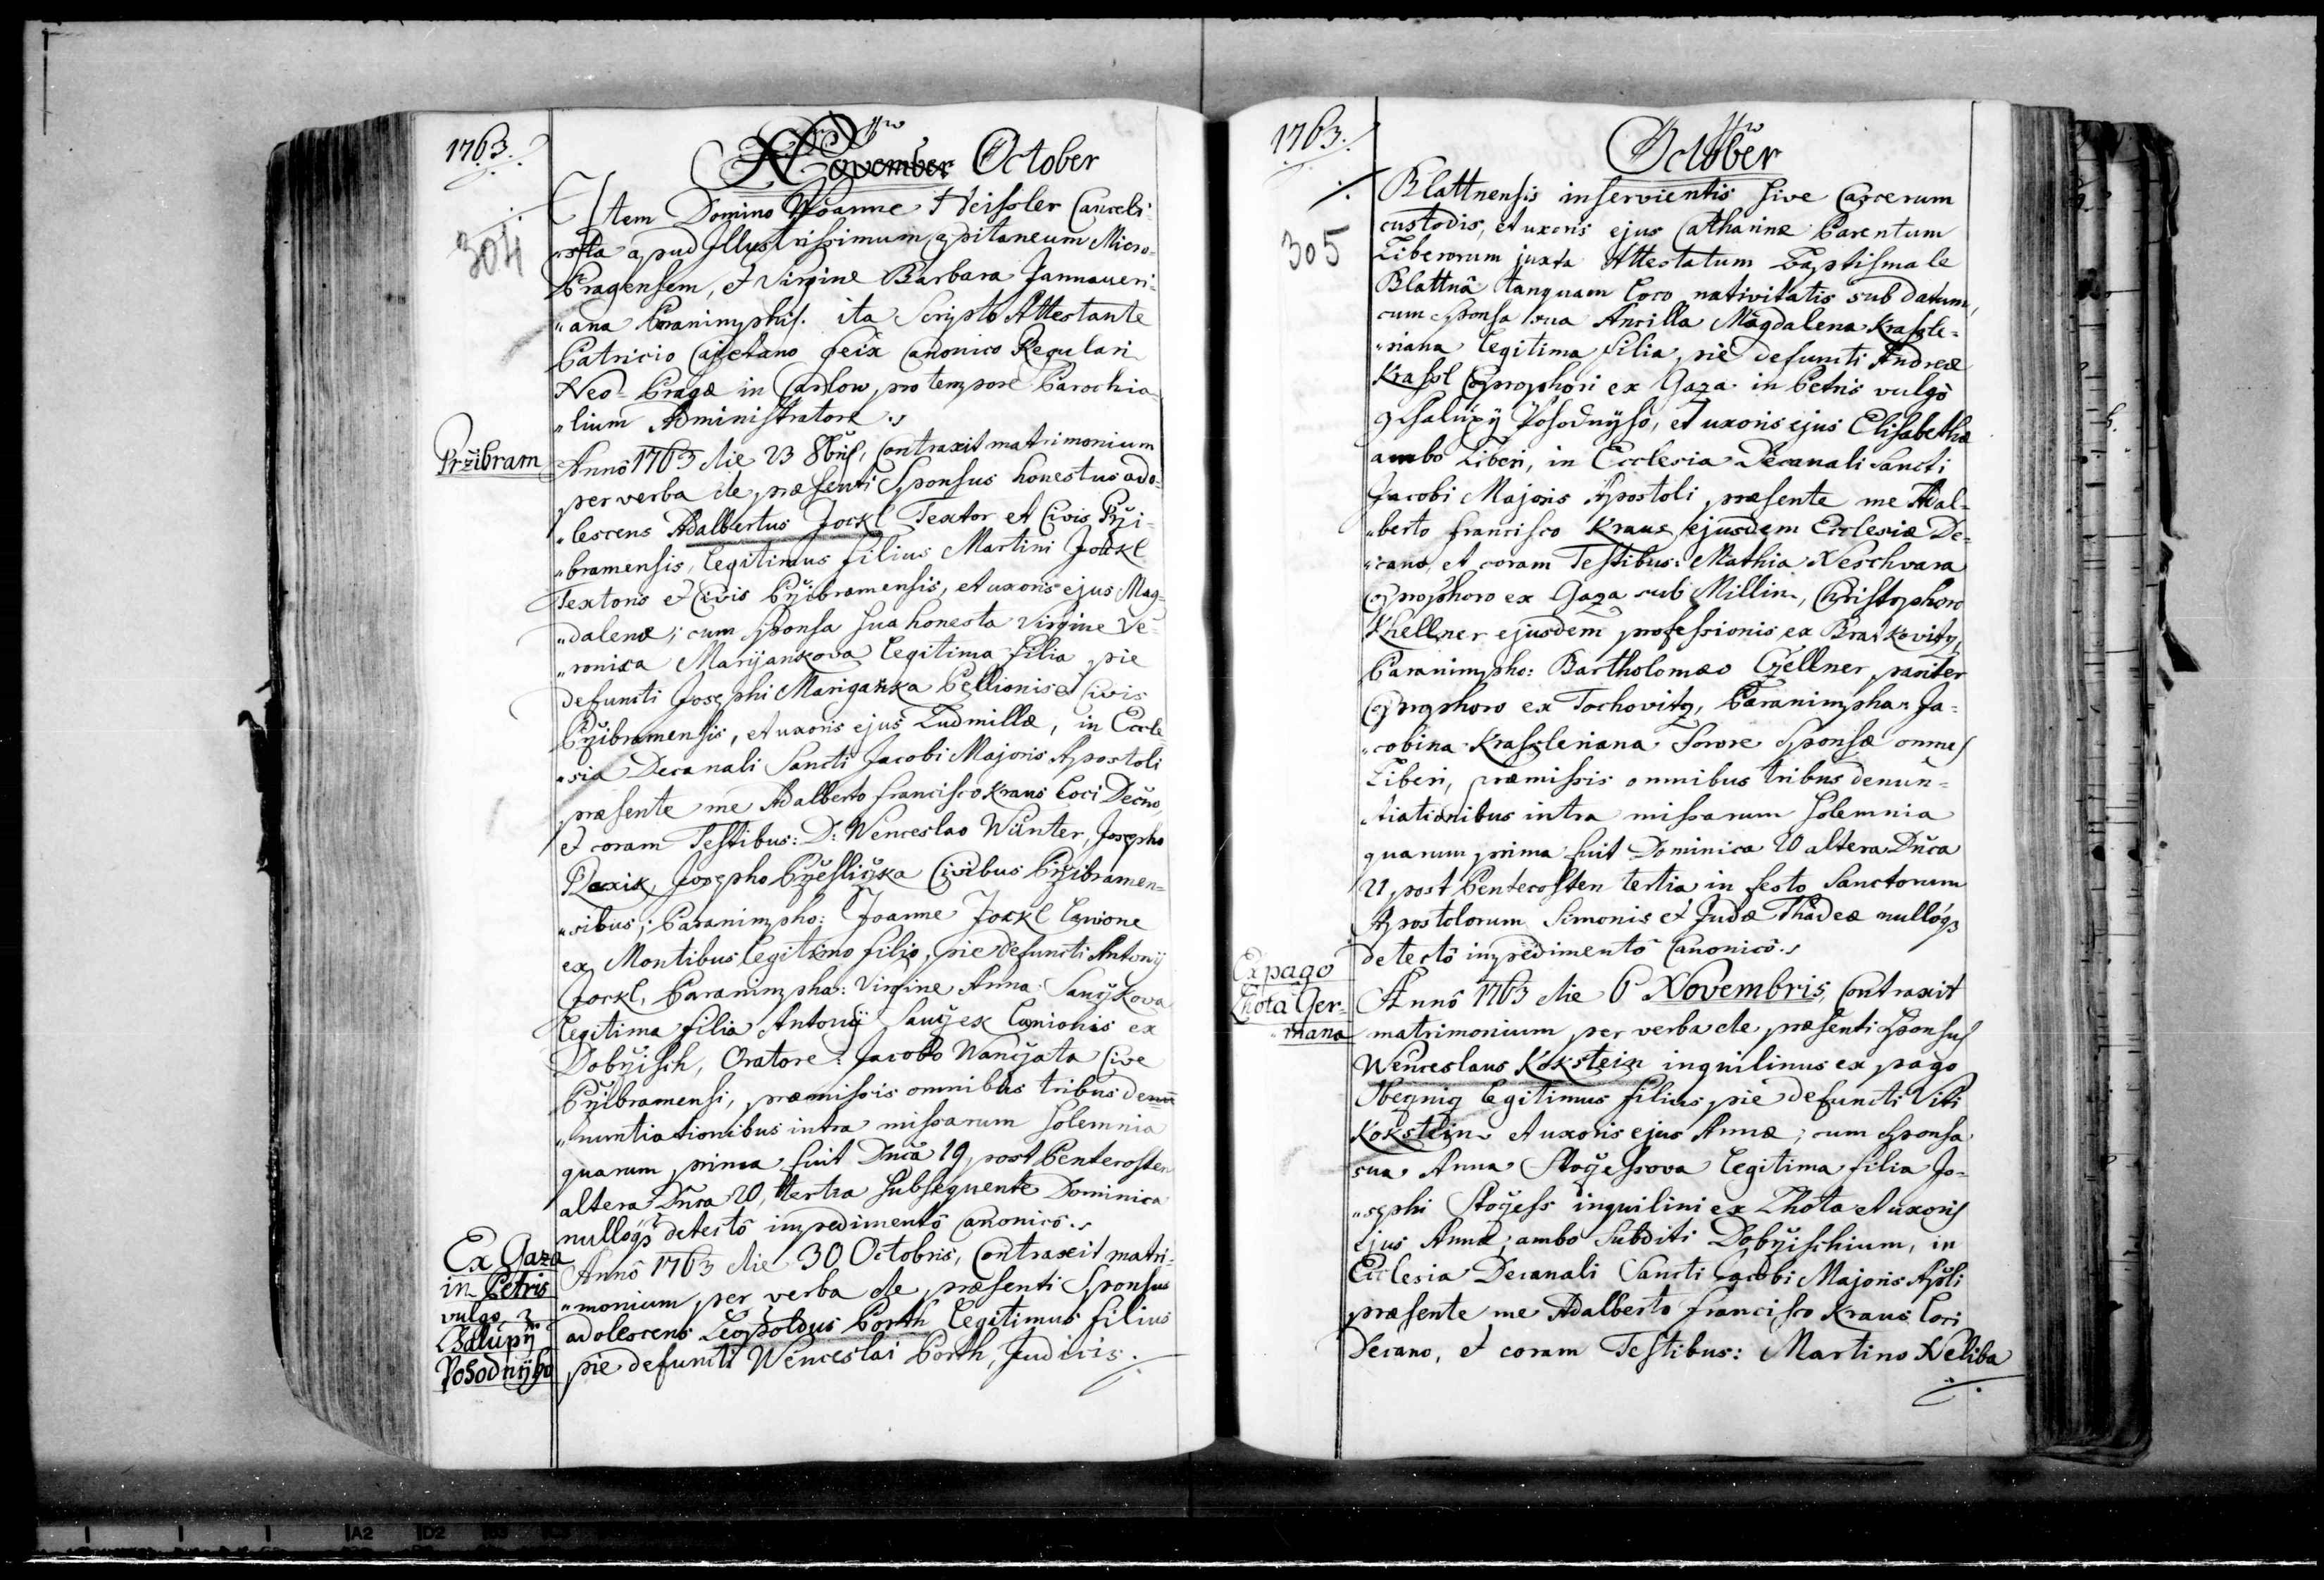 1763.
November October
304
Item Domino Joanne Heissler Canceli-
"sta apud Illustrissimum Capitaneum Micro-
Pragensem, et Virgine Barbara Jannaueri-
"ana Paranimphis. ita Scripto Attestante
Patricio Cajetano Feix Canonico Regulari
Neo-Pragæ in Carlow, pro tempore Parochia-
"lium Administratore.
Pržibram
Annô 1763 die 23 8bris, Contraxit matrimonium
per verba de præsenti Sponsus honestus ado-
"lescens Adalbertus Jockl Textor et Civis Přzi-
"bramensis, legitimus filius Martini Jockl
Textoris et Civis Przibramensis, et uxoris ejus Mag-
"dalenæ; cum Sponsa sua honesta Virgine Ve-
"ronica Marijankova legitima filia pie
defuncti Josephi Mariganka Pellionis et Civis
Przibramensis, et uxoris ejus Ludmillæ, in Eccle-
"sia Decanali Sancti Jacobi Majoris Apostoli
præsente me Adalberto Francisco Kraus loci Decãno,
et coram Testibus: D: Wenceslao Winter, Josepho
Josepho Civibus Przibramen-
"sibus; Paranimpho: Joanne Jockl Lanione
ex Montibus legitimo filio, pie defuncti Antonij
Jockl, Paranimpha: Virgine Anna
legitima filia Antonij Lanionis ex
Dobrzisch, Oratore: Jacobo Cive
Przibramensi, præmissis omnibus tribus denun-
"nuntiationibus intra missarum solemnia
quarum prima fuit Dnca 19 post Pentecosten
altera Dnca 20, tertia subsequente Dominica
nullóqz detectô impedimentô Canonicô.
Ex Gaza
in Petris
vulgo z
Chalupÿ
Posodnÿho
Annô 1763 die 30 Octobris, Contraxit matri-
"monium per verba de præsenti Sponsus
adolescens Leopoldus Porth legitimus filius
pie defuncti Wenceslai Porth, Judicis.
1763.
October
305
Blattnensis inservientis sive Carcerum
custodis, et uxoris ejus Catharinæ Parentum
Liberorum juxta Attestatum Baptismale
Blattnâ tanquam loco nativitatis sub datum,
cum Sponsa sua Ancilla Magdalena Krassle-
"riana legitima filia, pie defuncti Andreæ
Krassl ex Gaza in Petris vulgô
z Chalupÿ Posodnÿho, et uxoris ejus Elisabethæ
ambo Liberi, in Ecclesia Decanali Sancti
Jacobi Majoris Apostoli præsente me Adal-
"berto Francisco Kraus, ejusdem Ecclesiæ De-
"cano, et coram Testibus: Mathia Neschvara
ex Gaza sub Millin, Christophoro
Khellner ejusdem professionis ex Bratkovitz,
Paranimpho: Bartholomæo Czellner, pariter
ex Tochovitz, Paranimpha: Ja-
"cobina Krassleriana Sorore Sponsæ omnes
Liberi, præmissis omnibus tribus denun-
"tiationibus intra missarum solemnia
quarum prima fuit Dominica 20 altera Dnca
21 post Pentecosten tertia in festo Sanctorum
Apostolorum Simonis et Judæ Thadeæ nullóqz
detectô impedimentô Canonicô.
Ex pago
Lhota Ger-
"mana
Annô 1763 die 6 Novembris, Contraxit
matrimonium per verba de præsenti Sponsus
Wenceslaus Kokstein inquilinus ex pago
Obeznig legitimus filius pie defuncti Viti
Kokstein et uxoris ejus Annæ; cum Sponsa
sua Anna legitima filia Jo-
"sephi inquilini ex Lhota et uxoris
ejus Annæ, ambo Subditi Dobrzischium, in
Ecclesia Decanali Sancti Jacobi Majoris Apŏli
præsente me Adalberto Francisco Kraus loci
Decano, et coram Testibus: Martino Neliba